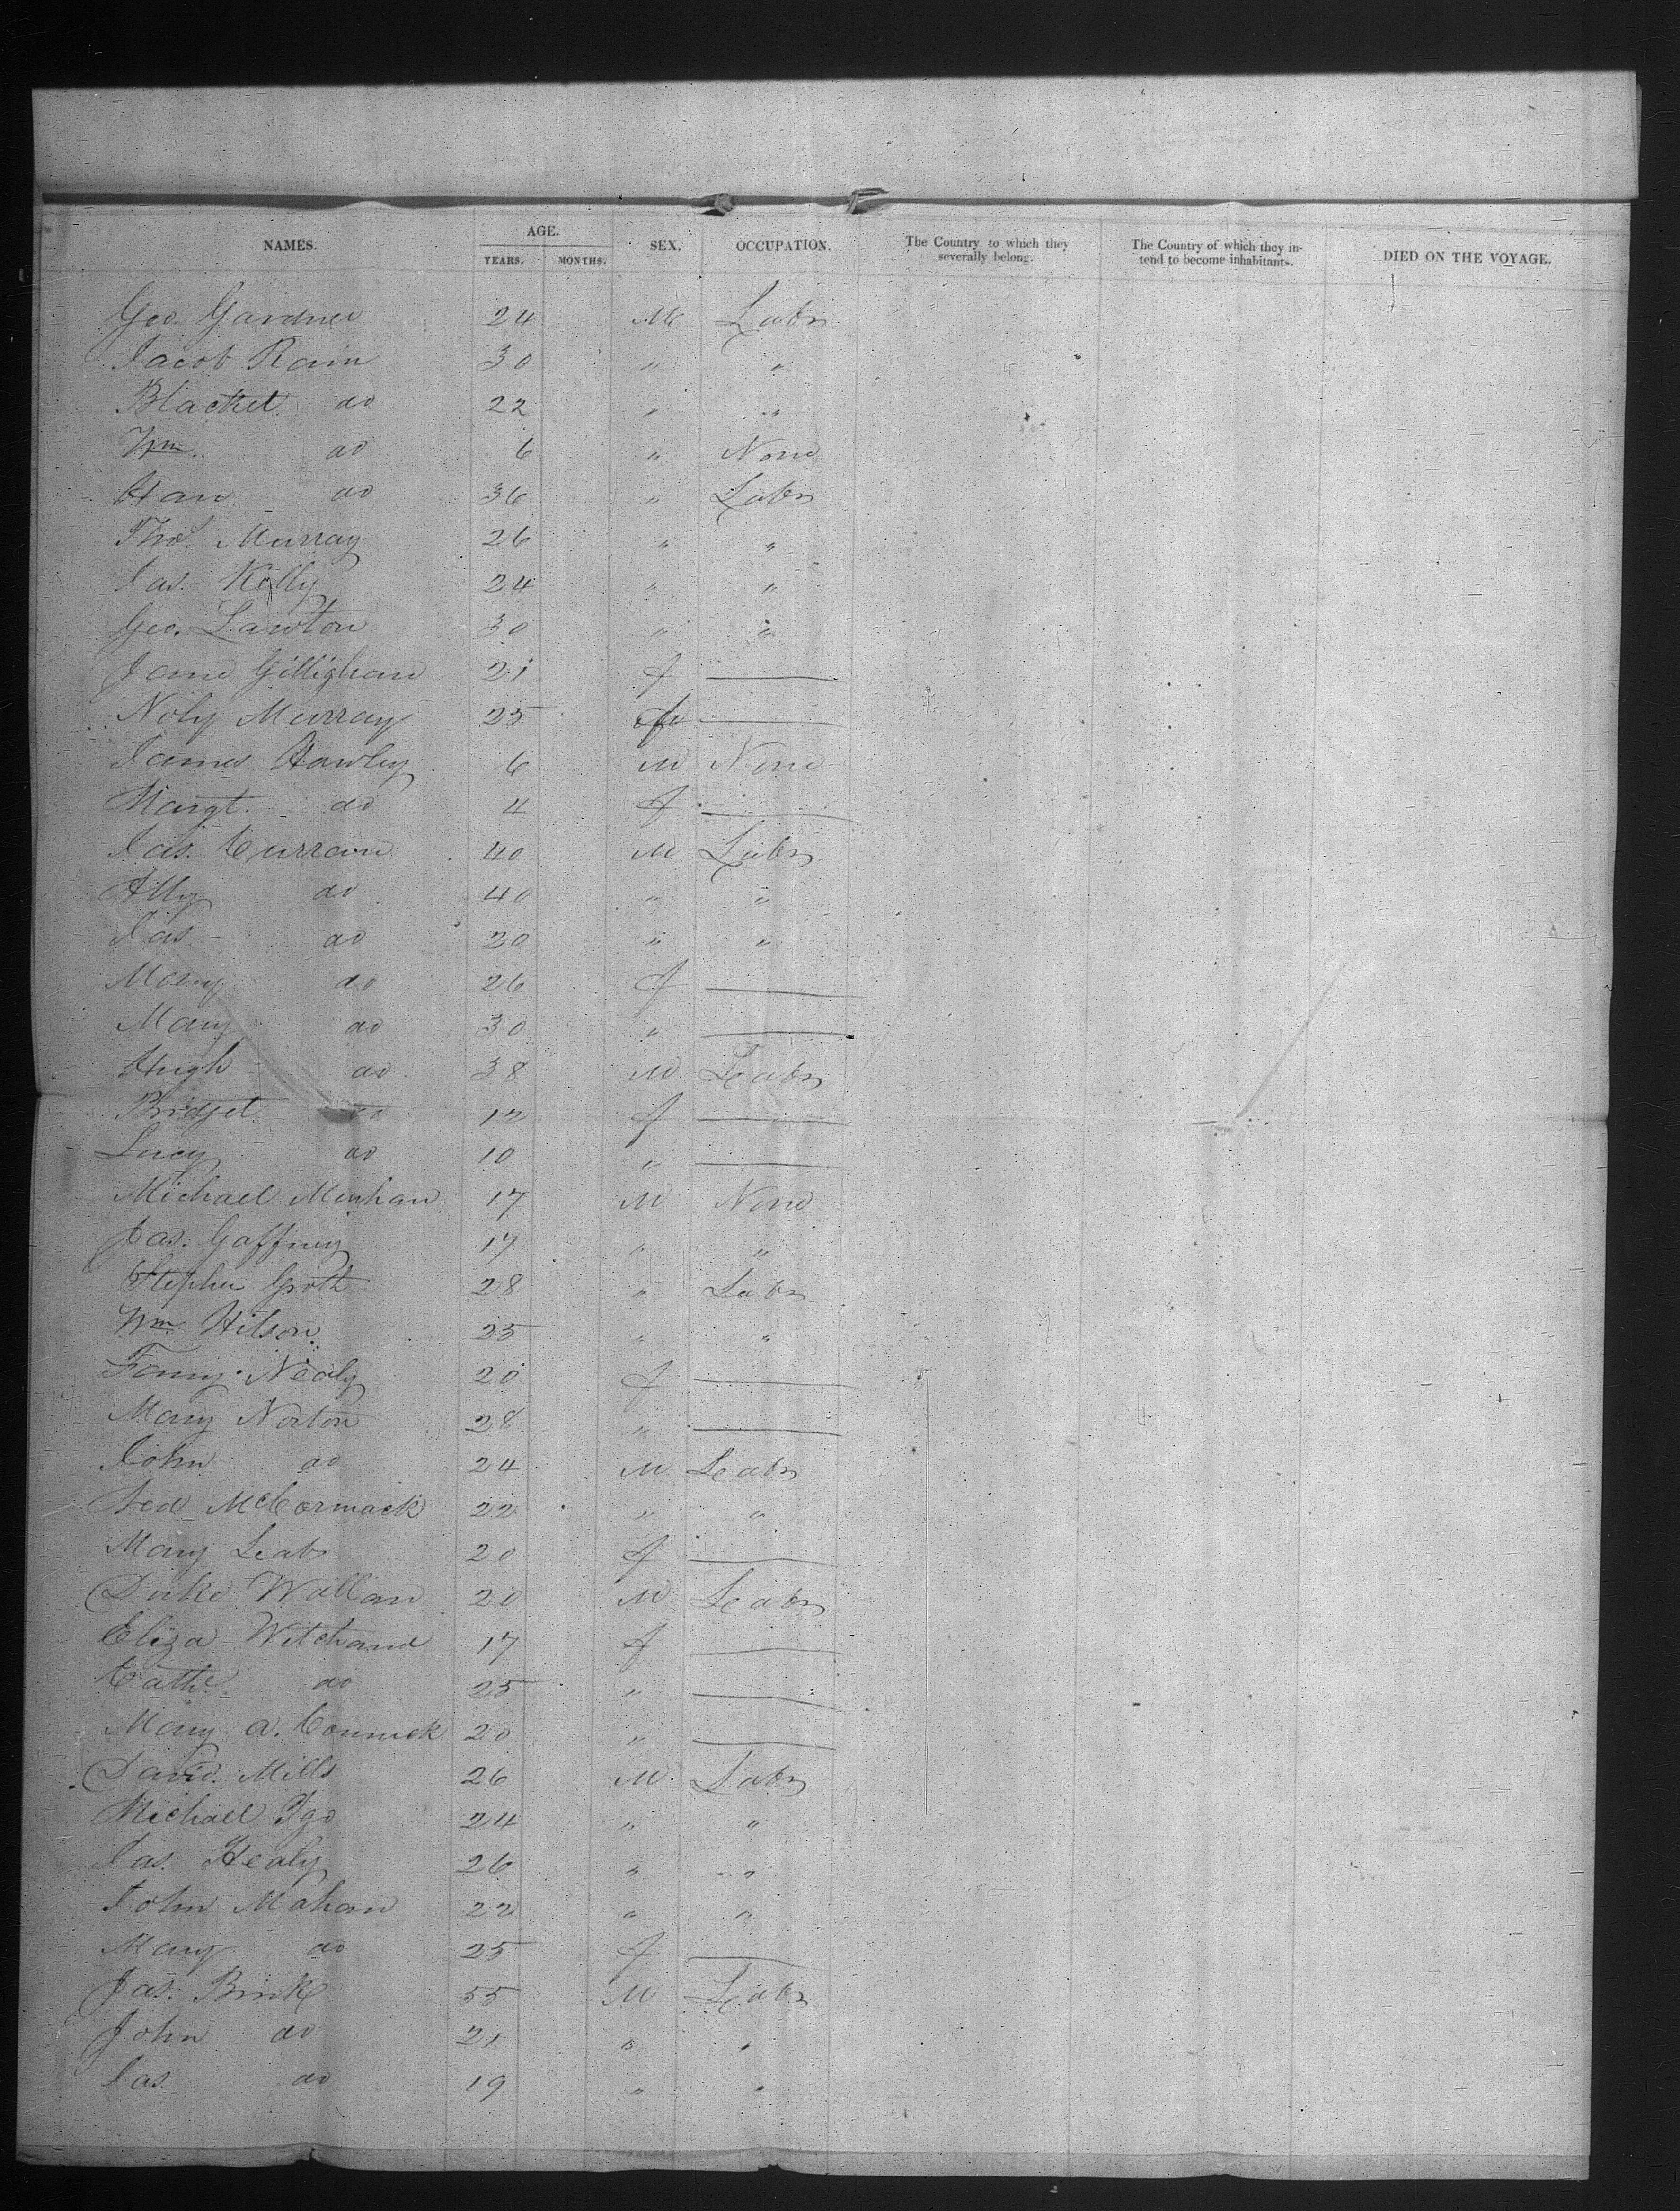 NAMES. AGE. SEX. OCCUPATION. The Country to which they severally belong. The Country of which they intend to become inhabitants. DIED ON THE VOYAGE.
YEARS. MONTHS.
Geo. Gardner 24 M Labr
Jacob Rain 30 " "
Blacket do 22 " "
Wm. do 6 " None
Han do 36 " Labr
Thos. Murray 26 " "
Jas. Kelly 24 " "
Geo. Lawton 30 " "
Jane Gillighan 21 f
Noly Murray 25 f
James Hawley 6 M None
Margt. do 4 f
Jas. Curran 40 M Labr
Ally do 40 " "
Jas do 20 " "
Mary do 26 f
Mary do 30 "
Hugh do 38 M Labr
Bridget do 12 f
Lucy do 10 "
Michael Menhan 17 M None
Jas. Gaffney 17 " "
Stephen Groth 28 " Labr
Wm Hilson 25 " "
Fanny Nealy 20 f
Mary Norton 28 "
John do 24 M Labr
Ned McCormack 22 " "
Mary Leab 20 f
Duke Wallan 20 M Labr
Eliza Witchand 17 f
Cathe. do 25 "
Mary A. Connick 20 "
David Mills 26 M. Labr
Michael Igo 24 " "
Jas. Healy 26 " "
John Mahan 22 " "
Mary do 25 f
Jas. Brink 55 M Labr
John do 21 " "
Jas. do 19 " "